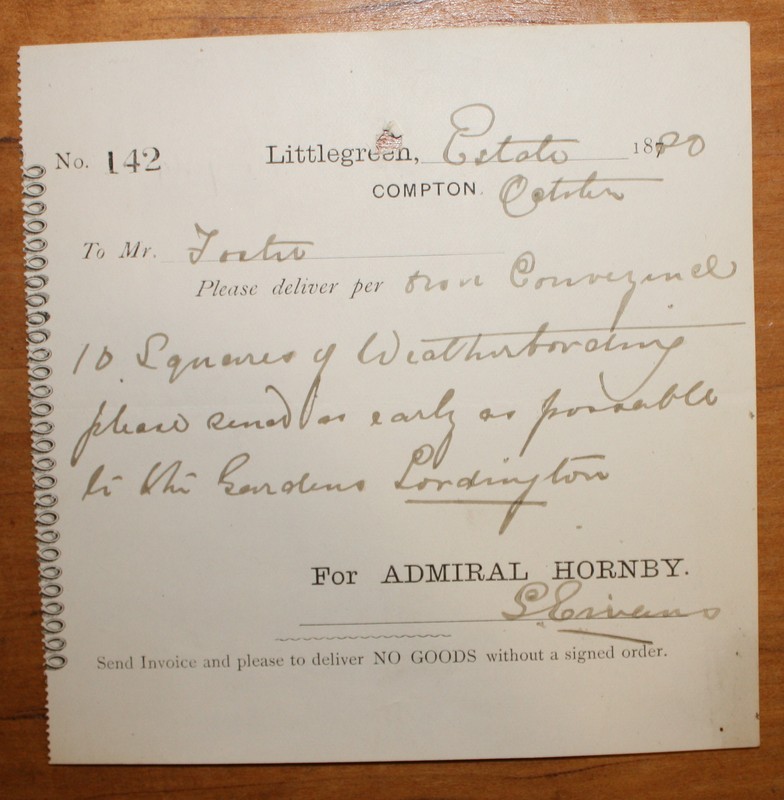 No. 142 Littlegreen, Estate 1890
COMPTON. October
To Mr. Foster
Please deliver per own Conveyance
10 Squares of Weatherbording
please send as early as possable
to the Gardens Lordington
For ADMIRAL HORNBY.
Evans
Send Invoice and please to deliver NO GOODS without a signed order.